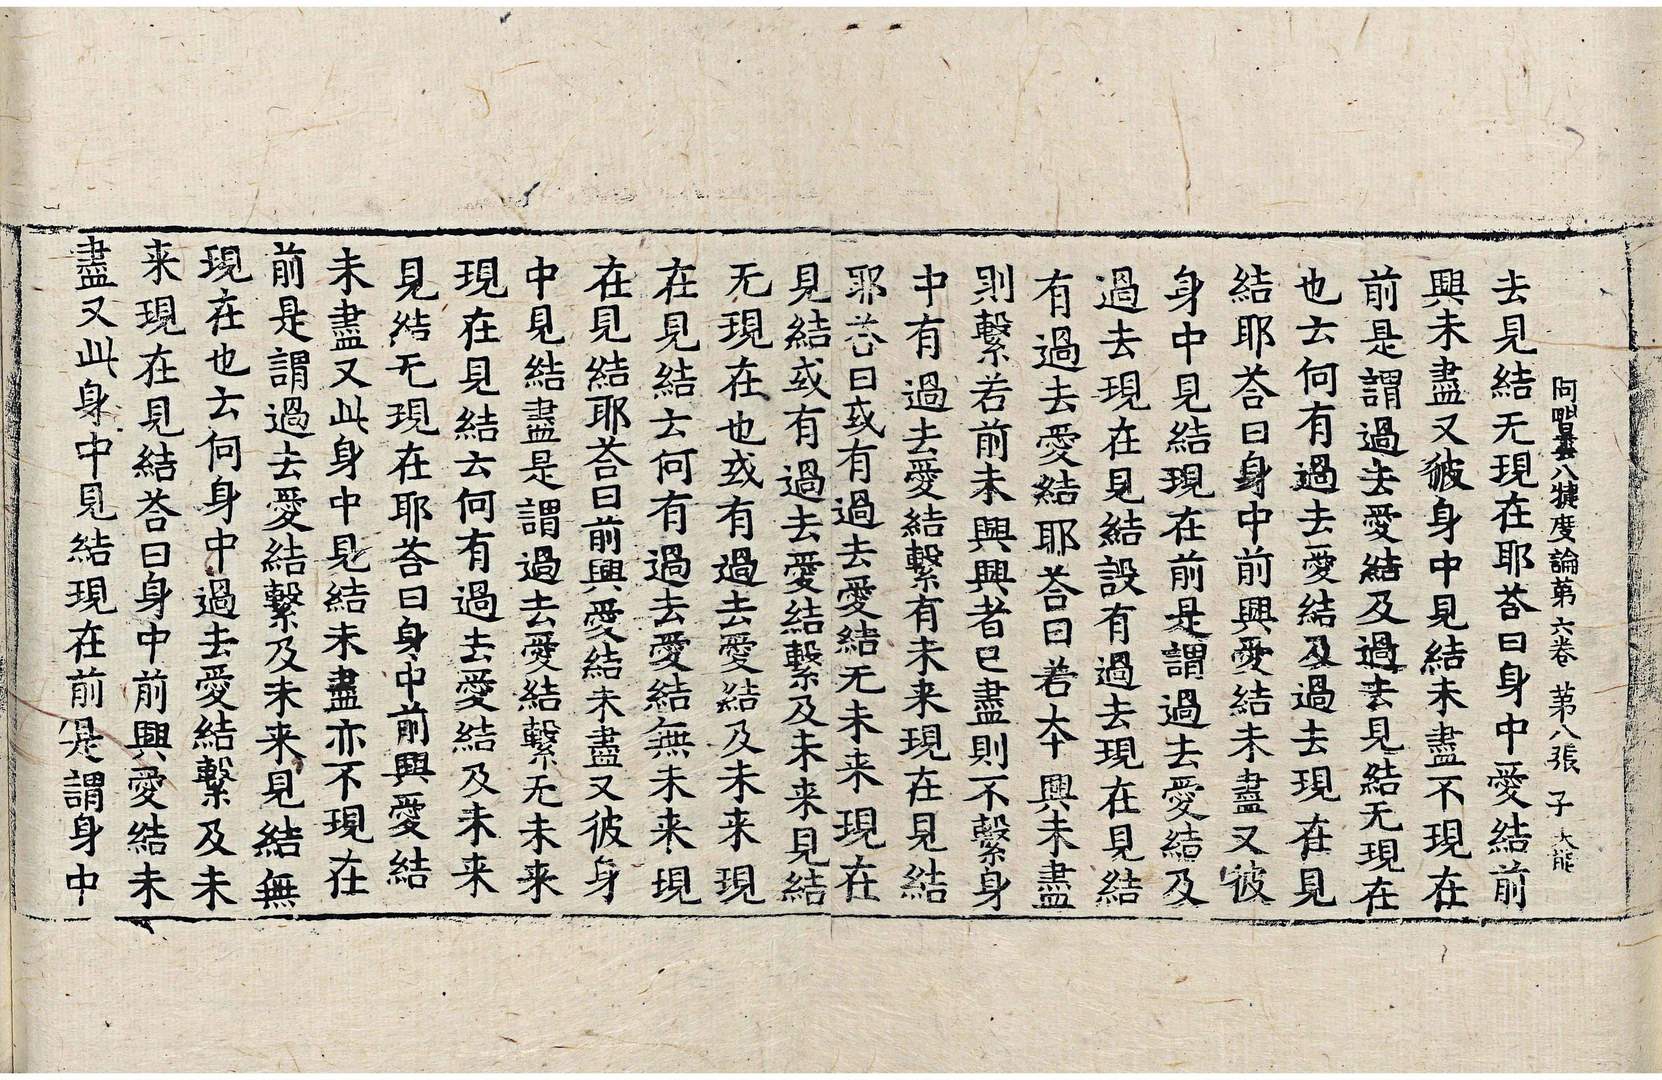 阿毗曇八犍度論苐六卷　苐八張　子　大能
去見結无現在耶荅曰身中愛結前
興未盡又彼身中見結未盡不現在
前是謂過去愛結及過去見結无現在
也云何有過去愛結及過去現在見
結耶荅曰身中前興愛結未盡又彼
身中見結現在前是謂過去愛結及
過去現在見結設有過去現在見結
有過去愛結耶荅曰若本興未盡
則繫若前未興興者已盡則不繫身
中有過去愛結繫有未来現在見結
耶荅曰或有過去愛結无未来現在
見結或有過去愛結繫及未来見結
无現在也或有過去愛結及未来現
在見結云何有過去愛結無未来現
在見結耶荅曰前興愛結未盡又彼身
中見結盡是謂過去愛結繫无未来
現在見結云何有過去愛結及未来
見結无現在耶荅曰身中前興愛結
未盡又此身中見結未盡亦不現在
前是謂過去愛結繫及未来見結無
現在也云何身中過去愛結繫及未
来現在見結荅曰身中前興愛結未
盡又此身中見結現在前是謂身中